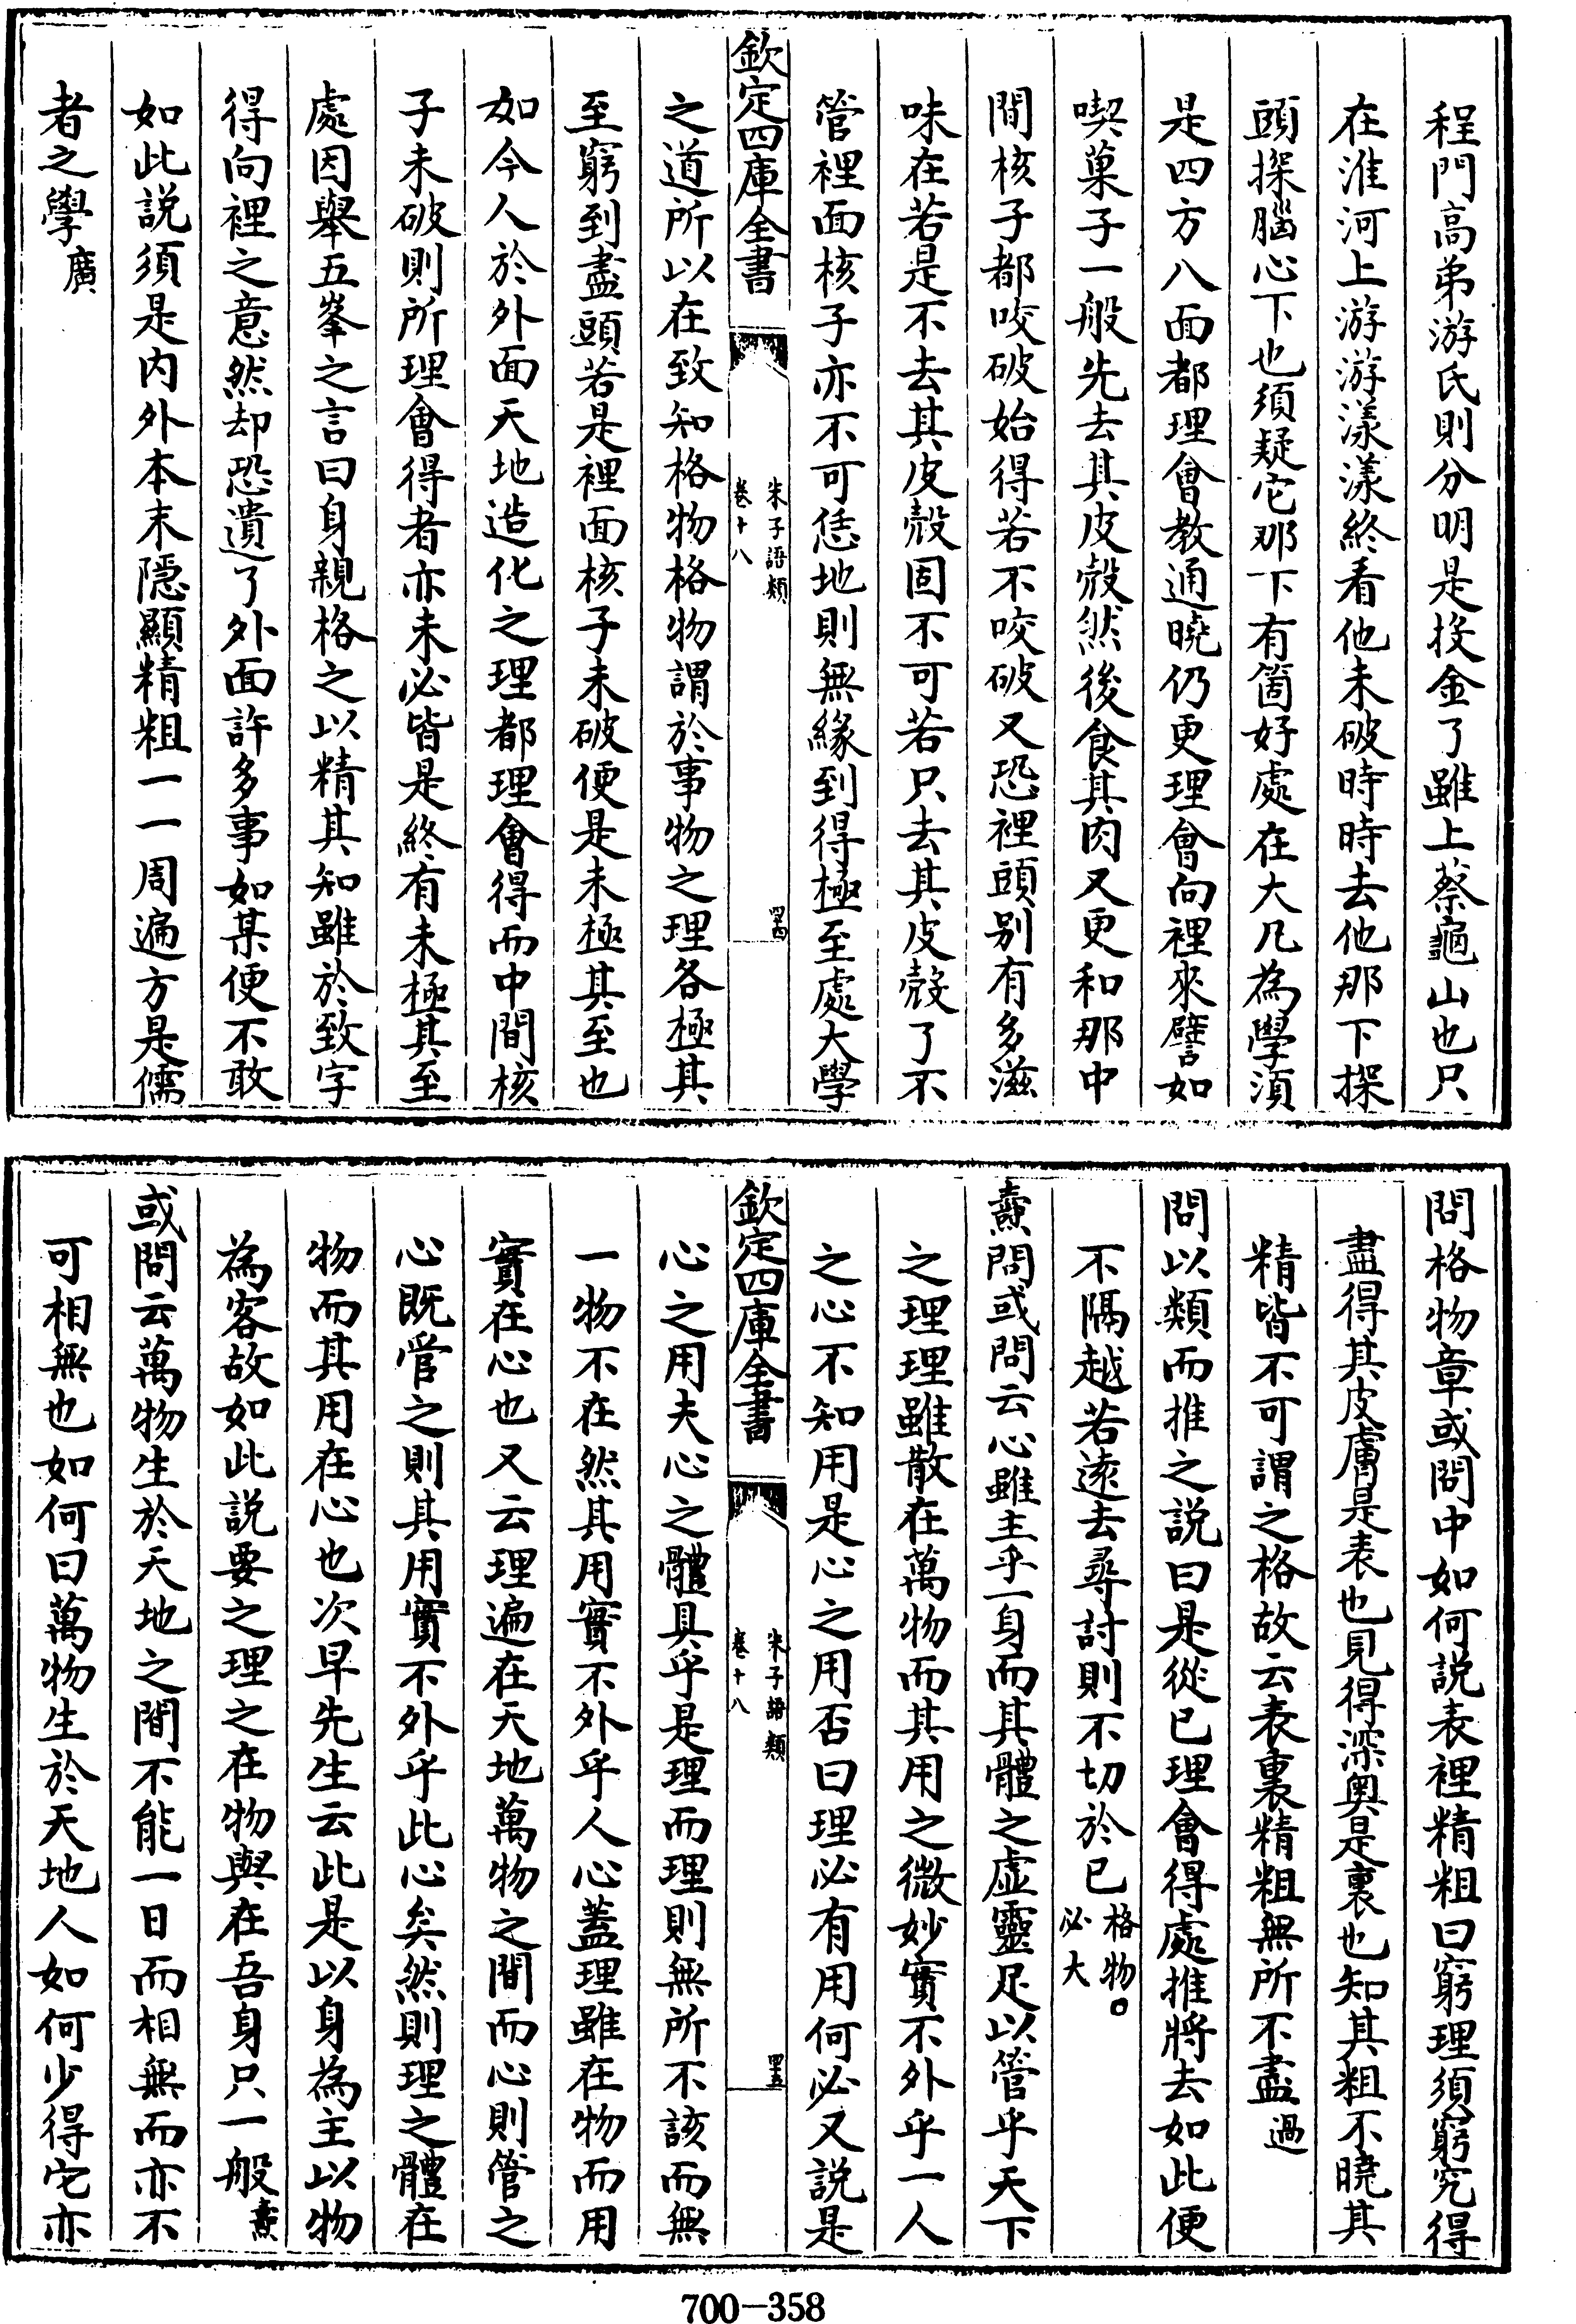 程門高弟游氏則分明是投金了雖上蔡龜山也只
在淮河上游游漾漾終看他未破時時去他那下探
頭探腦心下也須疑它那下有箇好處在大凡為學須
是四方八面都理會教通曉仍更理會向裡來譬如
喫菓子一般先去其皮殼然後食其肉又更和那中
間核子都咬破始得若不咬破又恐裡頭别有多滋
味在若是不去其皮殼固不可若只去其皮殼了不
管裡面核子亦不可恁地則無緣到得極至處大學
欽定四庫全書
朱子語類
卷十八
四十四
之道所以在致知格物格物謂於事物之理各極其
至窮到盡頭若是裡面核子未破便是未極其至也
如今人於外面天地造化之理都理會得而中間核
子未破則所理會得者亦未必皆是終有未極其至
處因舉五峯之言曰身親格之以精其知雖於致字
得向裡之意然却恐遺了外面許多事如某便不敢
如此説須是内外本末隱顯精粗一一周遍方是儒
者之學廣
問格物章或問中如何説表裡精粗曰窮理須窮究得
盡得其皮膚是表也見得深奥是裏也知其粗不曉其
精皆不可謂之格故云表裏精粗無所不盡過
問以類而推之説曰是從已理會得處推將去如此便
不隔越若遠去尋討則不切於已格物○必大
燾問或問云心雖主乎一身而其體之虚靈足以管乎天下
之理理雖散在萬物而其用之微妙實不外乎一人
之心不知用是心之用否曰理必有用何必又説是
欽定四庫全書
朱子語類
卷十八
四十五
心之用夫心之體具乎是理而理則無所不該而無
一物不在然其用實不外乎人心蓋理雖在物而用
實在心也又云理遍在天地萬物之間而心則管之
心既管之則其用實不外乎此心矣然則理之體在
物而其用在心也次早先生云此是以身為主以物
為客故如此説要之理之在物與在吾身只一般燾
或問云萬物生於天地之間不能一日而相無而亦不
可相無也如何曰萬物生於天地人如何少得它亦
700-358